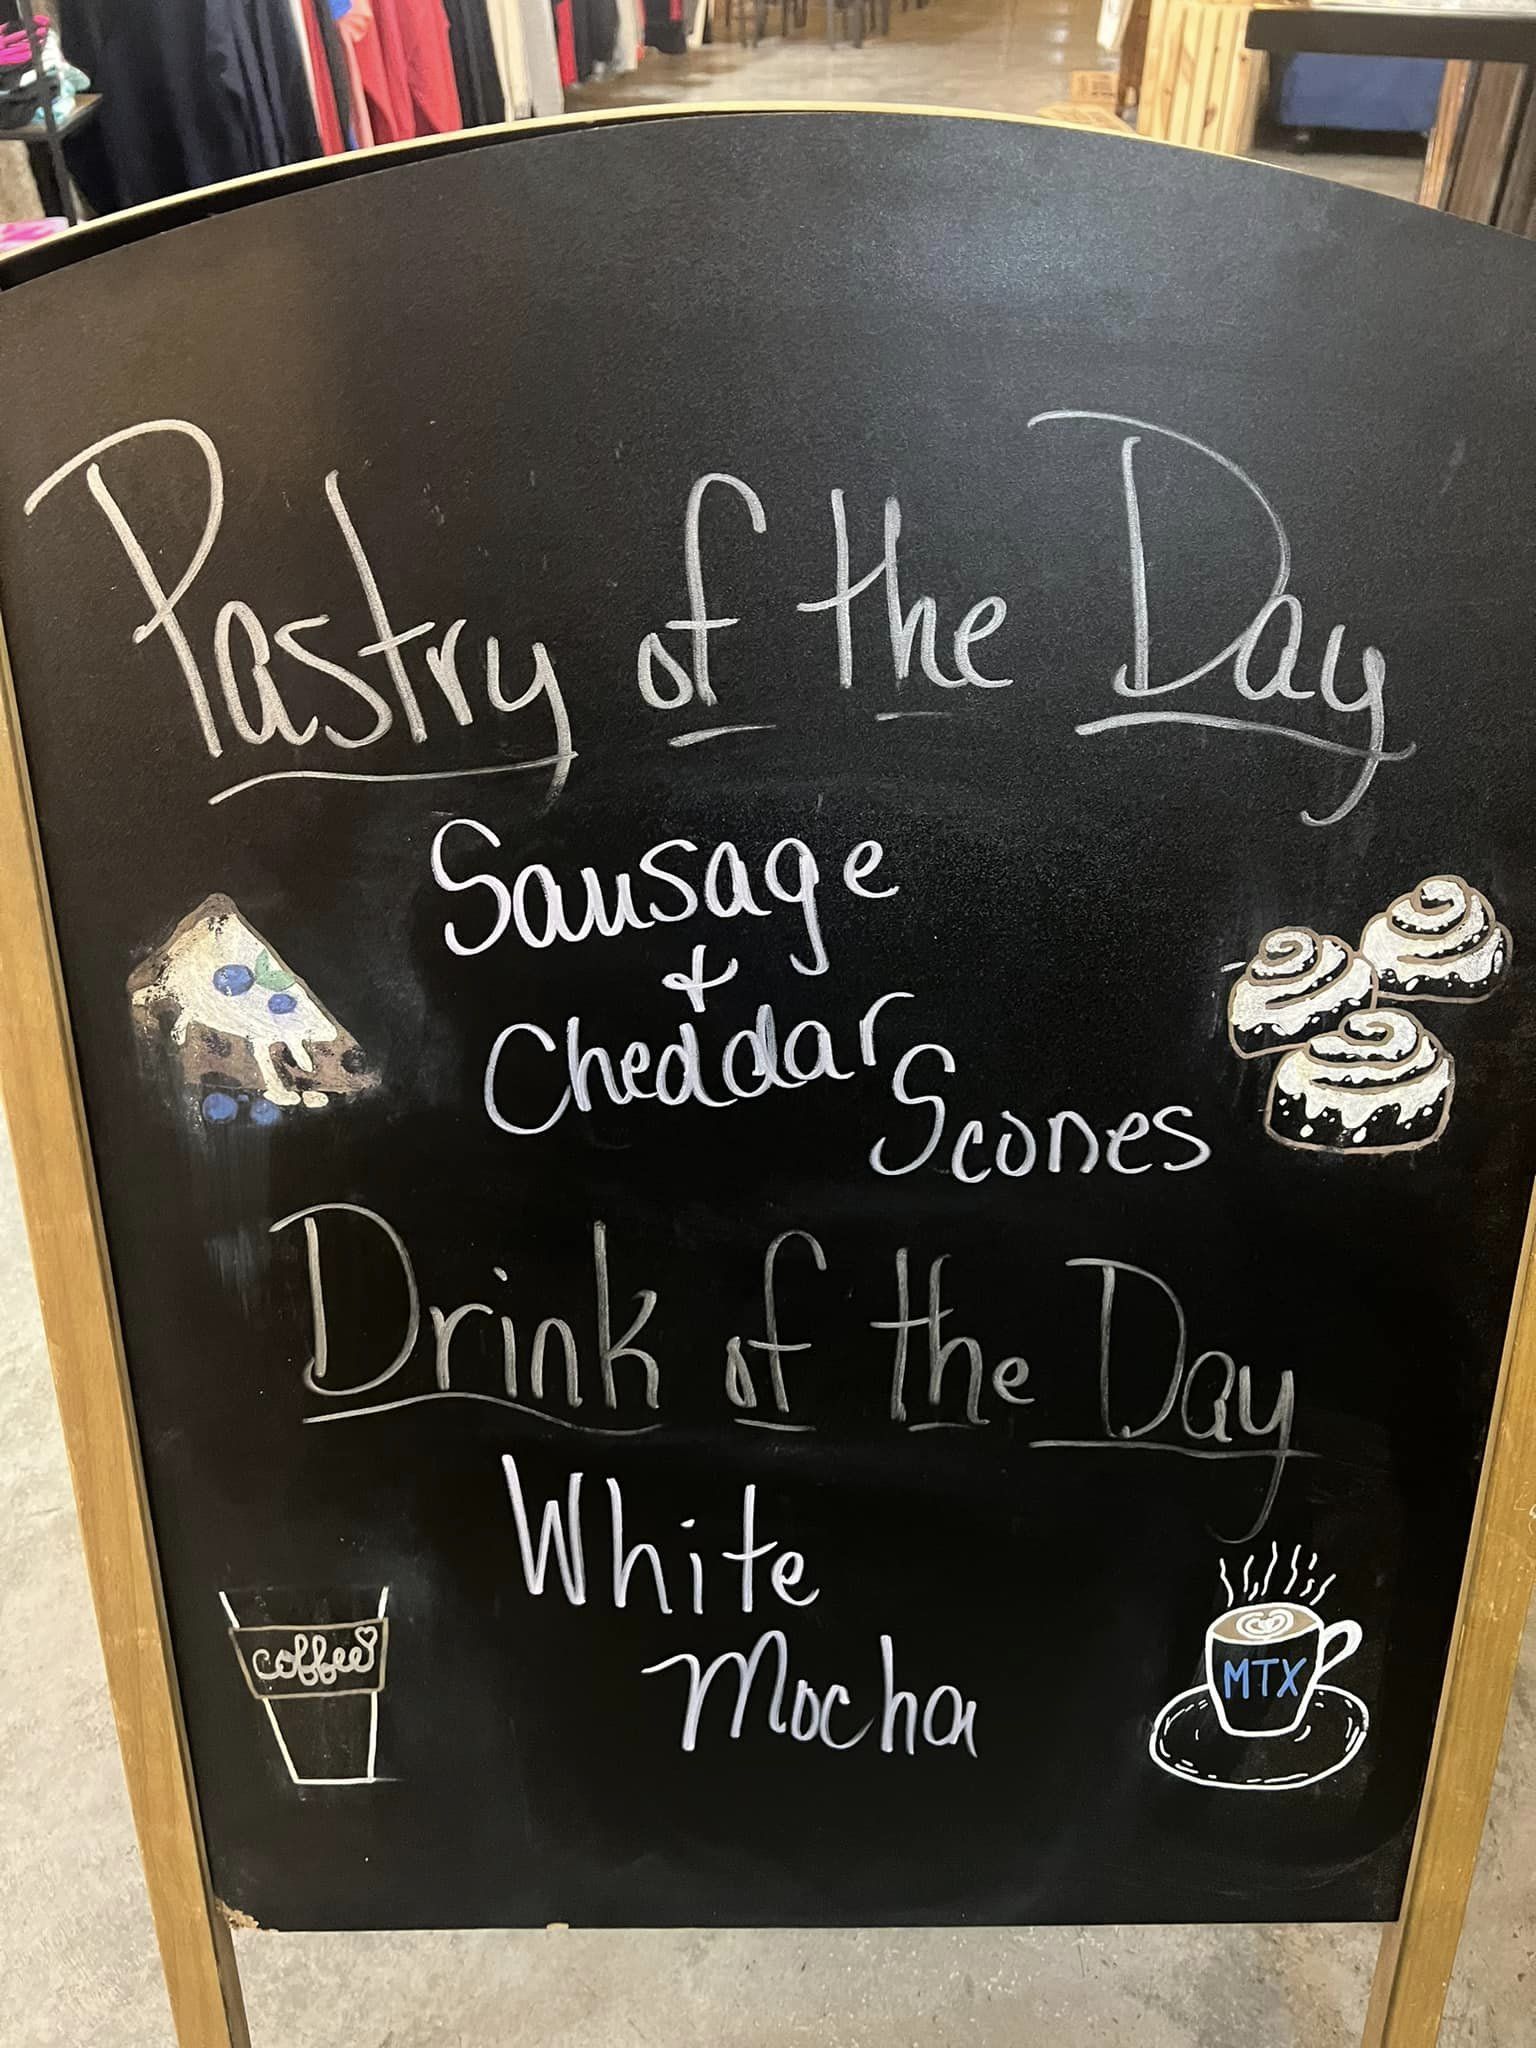 Pastry of the Day
Sausage
+
Cheddar
Scones
Drink of the Day
White
Mocha
coffee
MTX